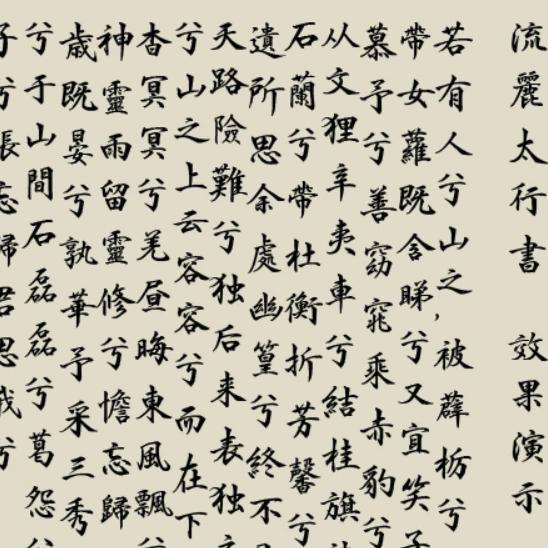 流麗太行書 效果演示
若有人兮山之,被薜枥兮
帶女蘿既含睇兮又宜笑子
慕予兮善窈窕乘赤豹兮
从文狸辛夷車兮結桂旗
石蘭兮帶杜衡折芳馨兮
遺所思余處幽篁兮終不
天路險難兮独后来表独
兮山之上云容容兮而在下
杳冥冥兮羌昼晦東風飄兮
神靈雨留靈修兮憺忘歸
歲既晏兮孰華予采三秀
兮于山間石磊磊兮葛怨兮
子兮悵忘歸君思我兮